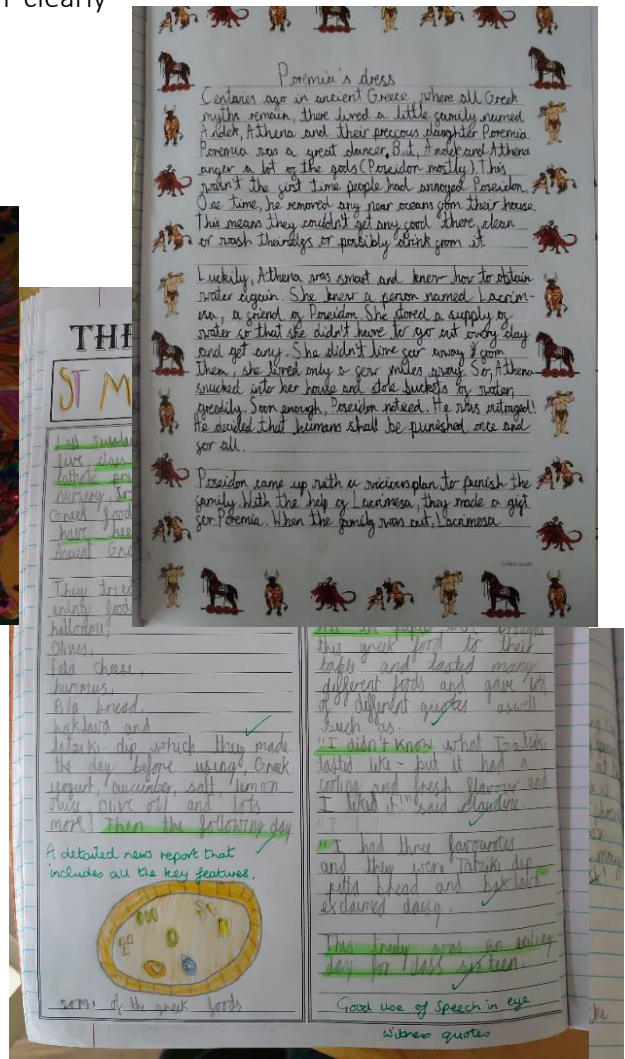 clearly
Poremia's dress
Centaries ago in ancient Greece, where all Greek
myths remain, there lived a little family named
Andek, Athena and their precious daughter Poremia.
Poremia was a great dancer. But, Andek and Athena
anger a lot of the gods (Poseidon mostly). This
wasn't the first time people had annoyed Poseidon.
One time, he removed any near oceans from their house.
This means they couldn't get any food there, clean
or wash theirselfs or possibly drink from it.
Luckily, Athena was smart and knew how to obtain
water again. She knew a person named Lacrim-
esa, a friend of Poseidon. She stored a supply of
water so that she didn't have to go out every day
and get any. She didn't live far away from
them, she lived only a few miles away. So, Athena
snucked into her house and stole buckets of water,
greedily. Soon enough, Poseidon noticed. He was outraged!
He decided that humans shall be punished once and
for all.
Poseidon came up with a vicious plan to punish the
family. With the help of Lacrimesa, they made a gift
for Poremia. When the family was out, Lacrimesa
THE
ST M
Last Tuesday
five class
catholic
nursery
Greek food
have bee
Ancient Gre
They tried
food
halloumi,
Olives,
Feta cheese,
hummus,
Pita bread,
baklava and
tatziki dip which they made
the day before using, Greek
yogurt, cucumber, salt, lemon
juice olive oil and lots
more! Then the following day
A detailed news report that
includes all the key features.
some of the greek foods
this greek food to their
table and tasted many
different foods and gave lots
of different quotes aswell
such as.
"I didn't know what Tzatziki
tasted like - but it had a
cooling and fresh flavour and
I liked it!" said claudine
"I had three favourites
and they were Tatziki dip
pitta bread and baklava"
exclaimed daisy.
This truly was an exiting
day for class sixteen.
Good use of speech in eye
witness quotes